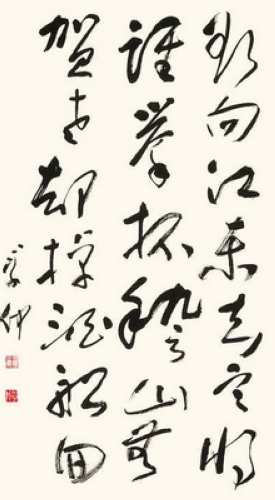 欲向江東去定將
誰舉杯稽山無
賀老却棹酒船回
學仲